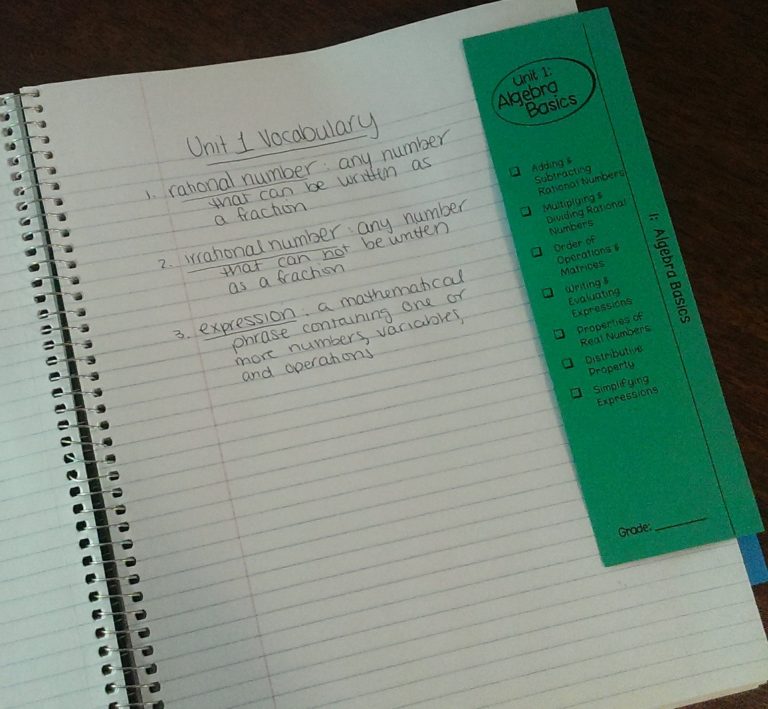 Unit 1 Vocabulary
1. rational number : any number
that can be written as
a fraction
2. irrational number : any number
that can not be written
as a fraction
3. expression : a mathematical
phrase containing one or
more numbers, variables,
and operations
Unit 1:
Algebra
Basics
Adding &
Subtracting
Rational Numbers
Multiplying &
Dividing Rational
Numbers
Order of
Operations &
Matrices
Writing &
Evaluating
Expressions
Properties of
Real Numbers
Distributive
Property
Simplifying
Expressions
Grade:
1: Algebra Basics